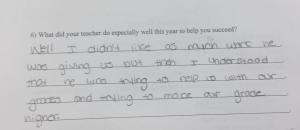 6) What did your teacher do especially well this year to help you succeed?
Well I didn't like as much work he
was giving us but then I understood
that he was trying to help us with our
grades and trying to make our grade
higher